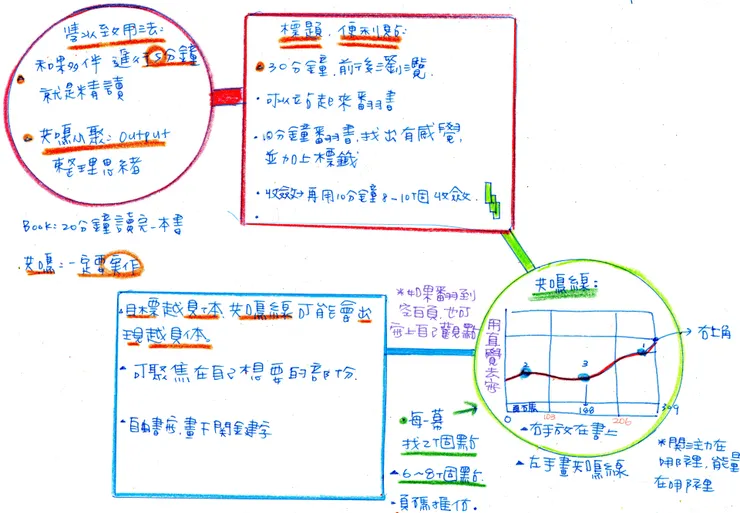 學以致用法:
和夥伴 進行5分鐘
就是精讀
共鳴小聚: output
整理思緒
Book: 20分鐘讀完一本書
共鳴: 一定要
標題、便利貼:
30分鐘,前後瀏覽
可以站起來翻書
10分鐘翻書,找出有感覺,
並加上標籤
收斂→再用10分鐘8-10個收斂.
共鳴線:
*如果翻到
空白頁,也可
寫上自己觀點
用直覺去寫
2
3
1
右上角
0
103
188
206
309
右手放在書上
左手畫共鳴線
*關注力在
哪裡,能量
在哪裡
每一幕
找2個點
6~8個點
頁碼推估
目標越具體 共鳴線可能會出
現越具体。
可聚焦在自己想要的部份.
自由書寫,畫下關鍵字